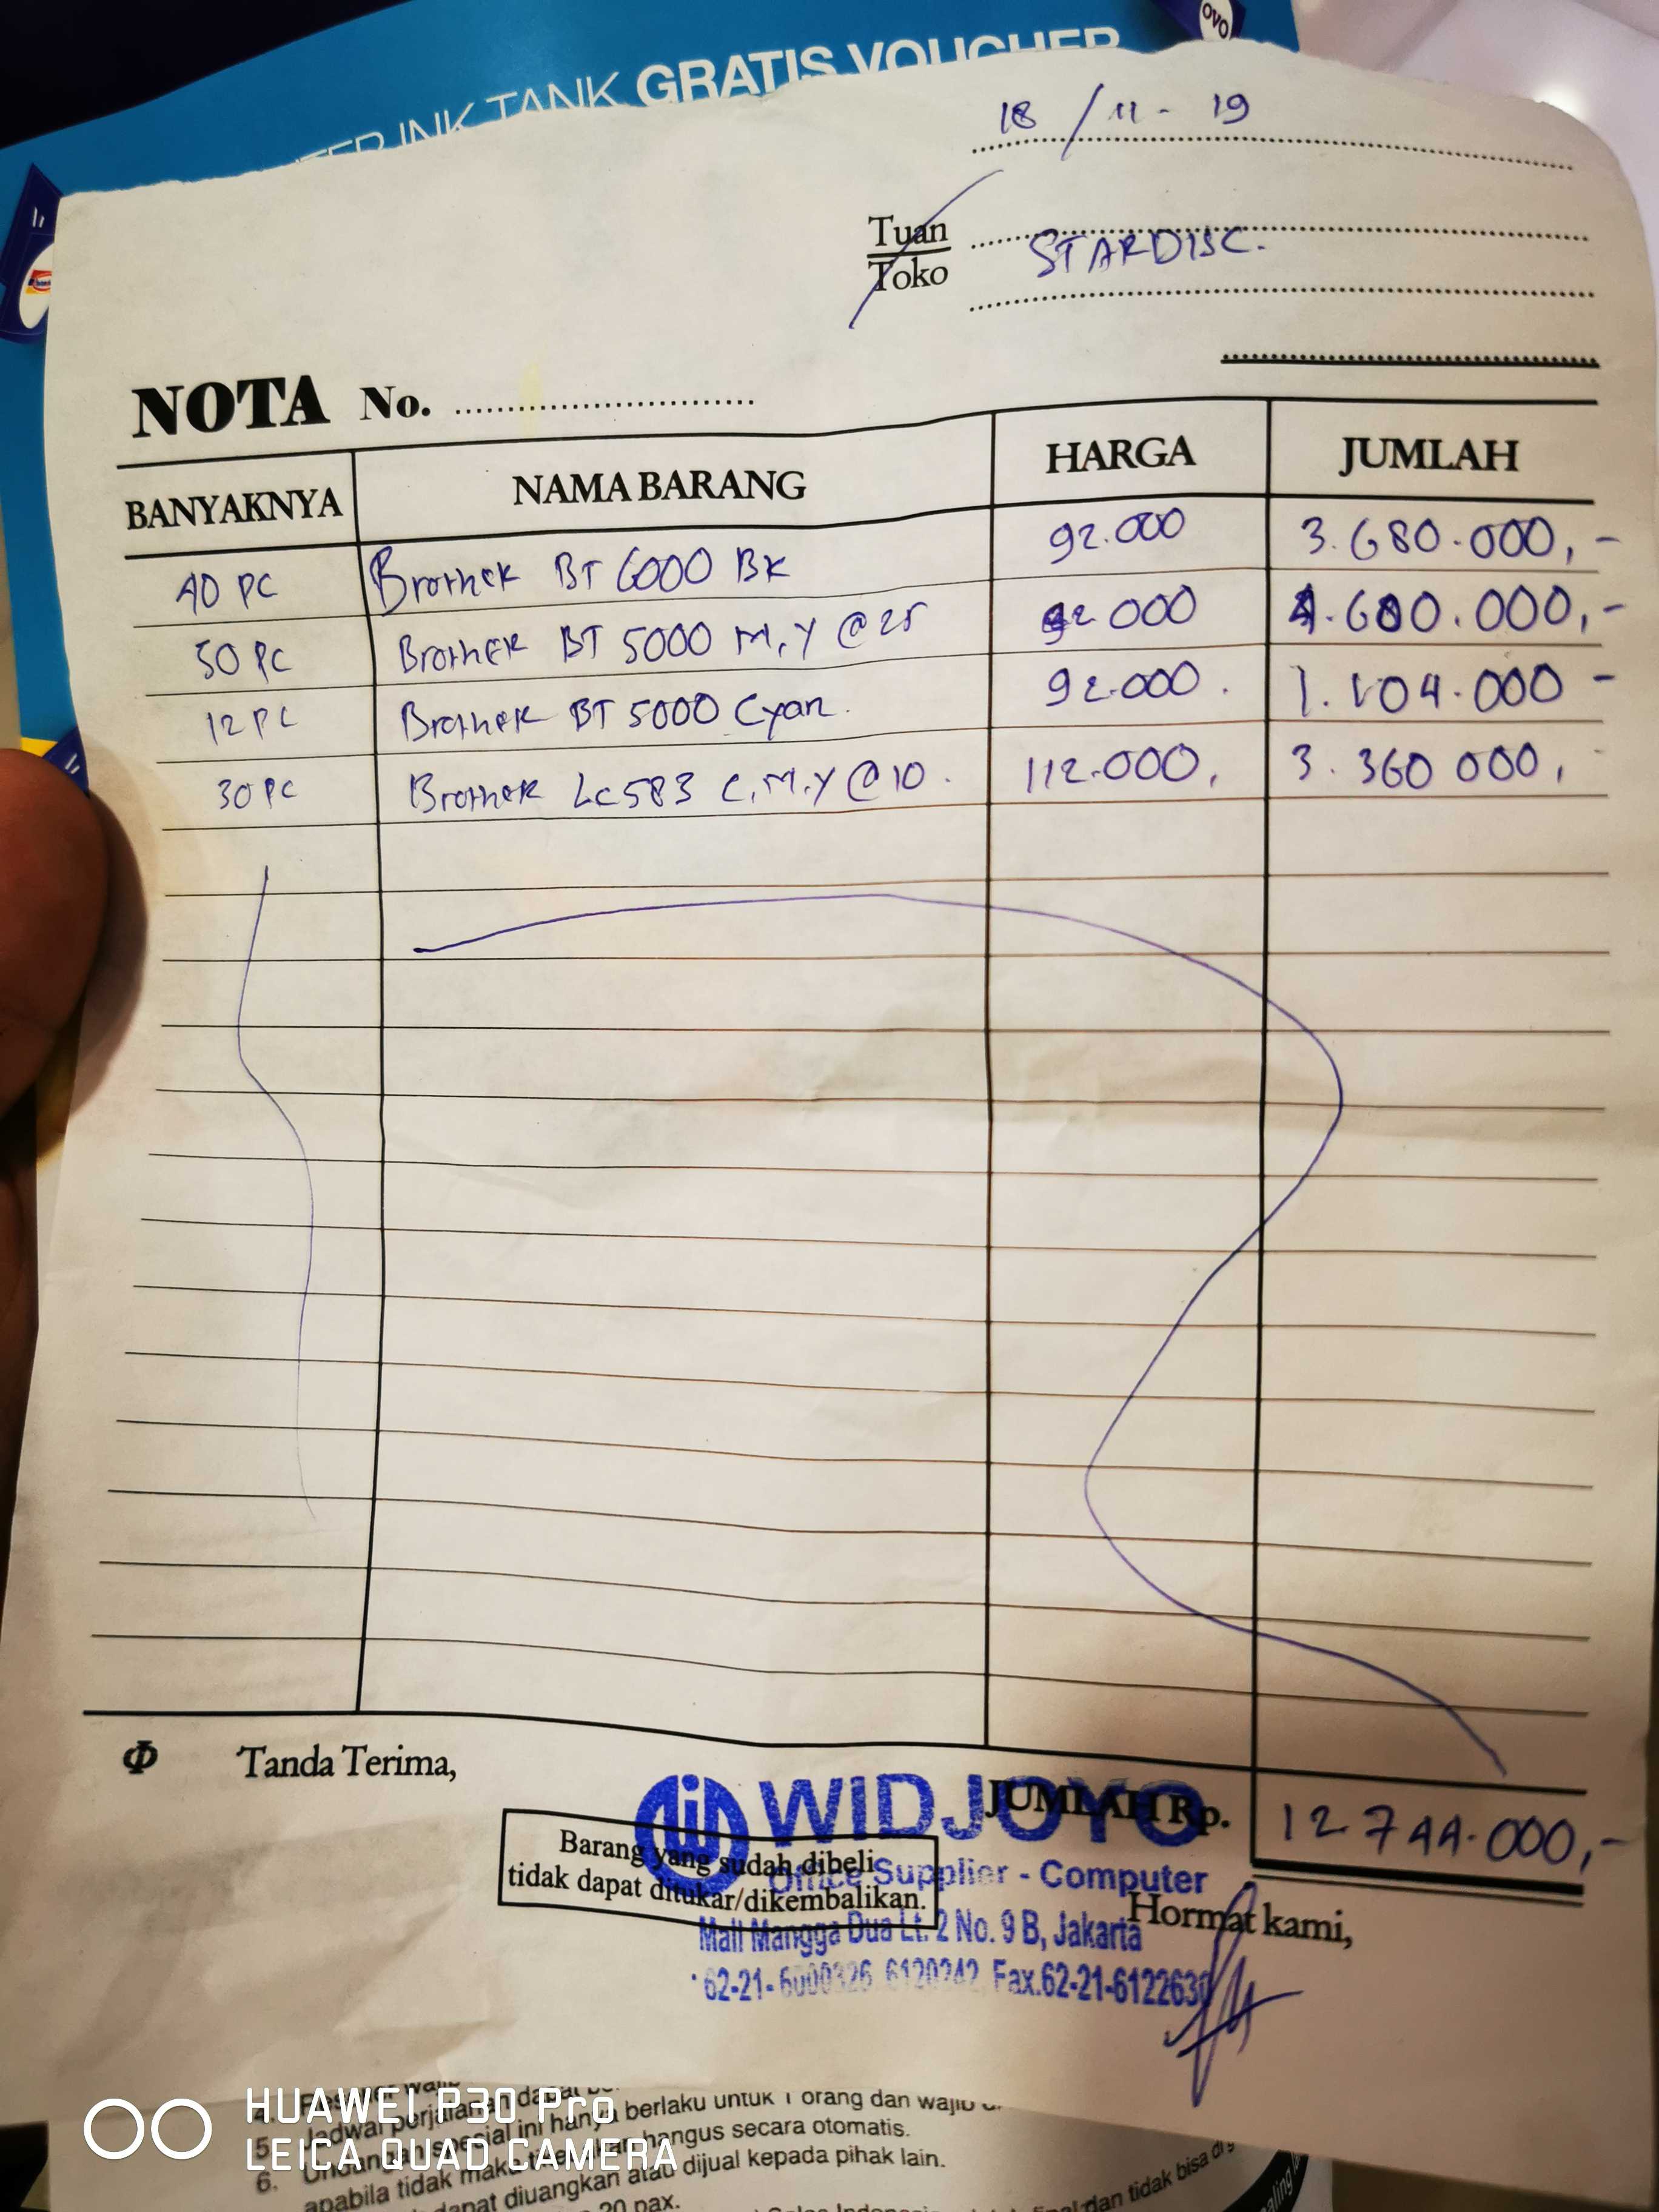 OVO
TER INK TANK GRATIS VOUCHER
18 / 11 - 19
Tuan
Toko
STARDISC.
NOTA No.
BANYAKNYA NAMA BARANG HARGA JUMLAH
40 PC Brother BT 6000 BK 92.000 3.680.000,-
50 PC Brother BT 5000 M,Y @ 25 92.000 4.600.000,-
12 PC Brother BT 5000 Cyan. 92.000. 1.104.000 -
30 PC Brother LC583 C,M,Y @ 10. 112.000, 3.360 000,-
Tanda Terima,
JUMLAH Rp. 12.744.000,-
WIDJOYO
Office Supplier - Computer
Mall Mangga Dua Lt. 2 No. 9 B, Jakarta
62-21- 6120242, Fax.62-21-6122630
Barang yang sudah dibeli
tidak dapat ditukar/dikembalikan.
Hormat kami,
HUAWEI P30 Pro
LEICA QUAD CAMERA
5. Jadwal perjalanan dapat
6. Undangan spesial ini hanya berlaku untuk 1 orang dan wajib
apabila tidak maka hangus secara otomatis.
dapat diuangkan atau dijual kepada pihak lain.
20 pax.
dan tidak bisa di